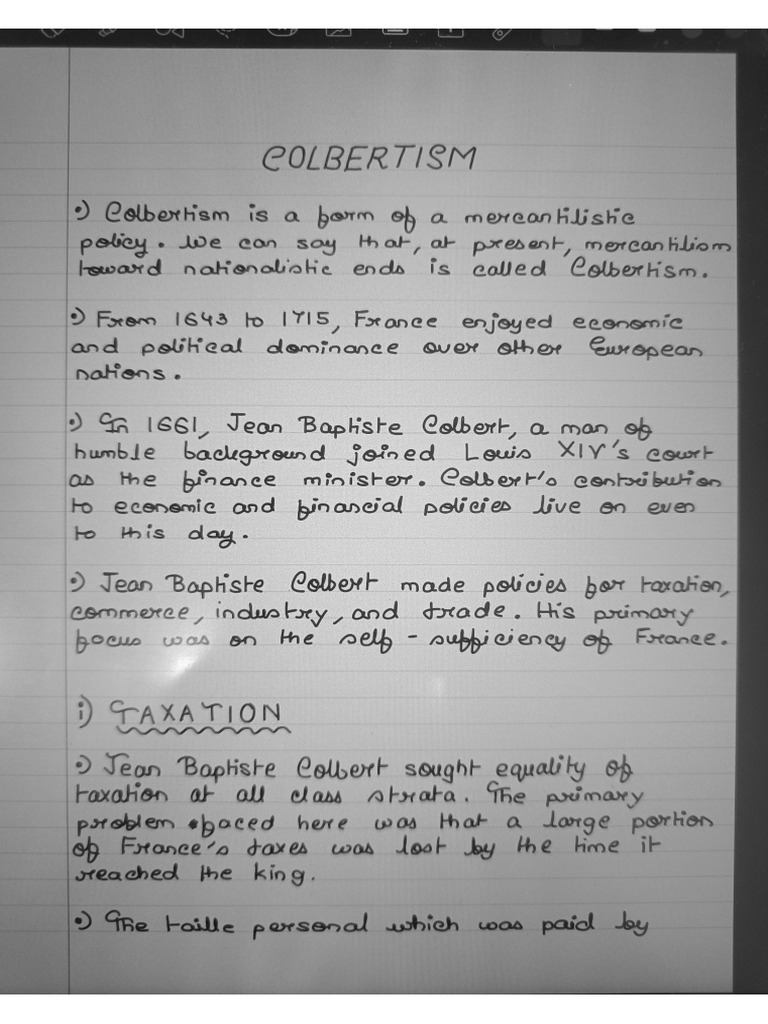 COLBERTISM
•) Colbertism is a form of a mercantilistic
policy. We can say that, at present, mercantilism
toward nationalistic ends is called Colbertism.
•) From 1643 to 1715, France enjoyed economic
and political dominance over other European
nations.
•) In 1661, Jean Baptiste Colbert, a man of
humble background joined Louis XIV's court
as the finance minister. Colbert's contribution
to economic and financial policies live on even
to this day.
•) Jean Baptiste Colbert made policies for taxation,
commerce, industry, and trade. His primary
focus was on the self-sufficiency of France.
i) TAXATION
•) Jean Baptiste Colbert sought equality of
taxation at all class strata. The primary
problem faced here was that a large portion
of France's taxes was lost by the time it
reached the king.
•) The taille personal which was paid by